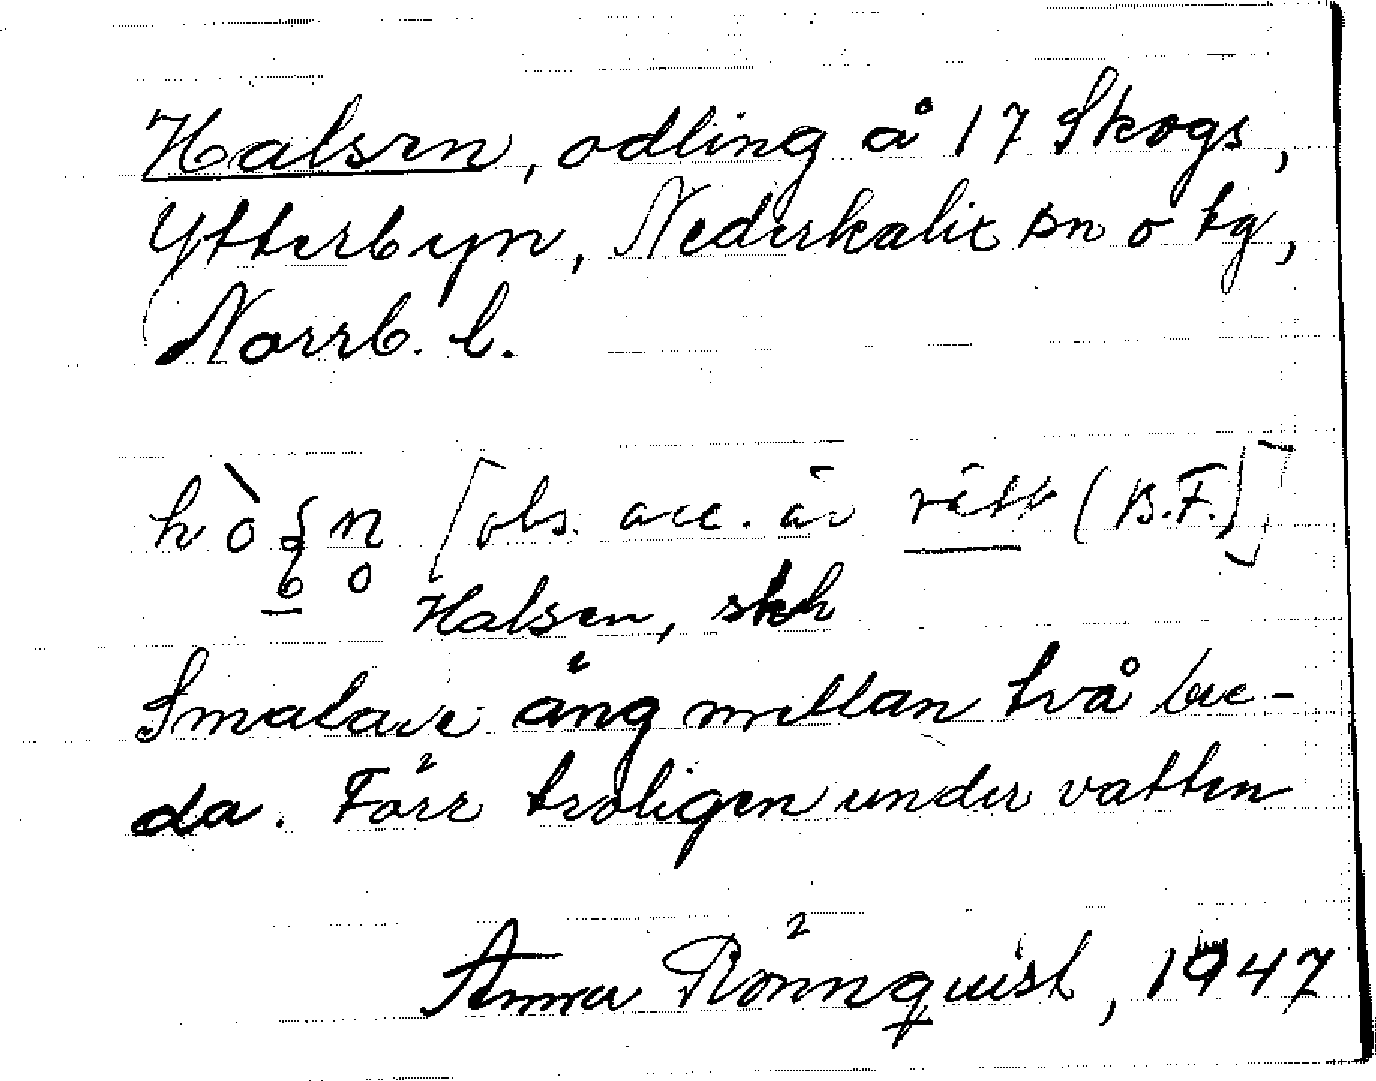 Halsen, odling å 17 Skogs,
Ytterbyn, Nederkalix sn o tg,
Norrb. l.
[obs. acc. är rätt (B.F.)]
Halsen, skh
Smalare äng mellan två lae-
da. Förr troligen under vatten
Anna Rönnquist, 1947